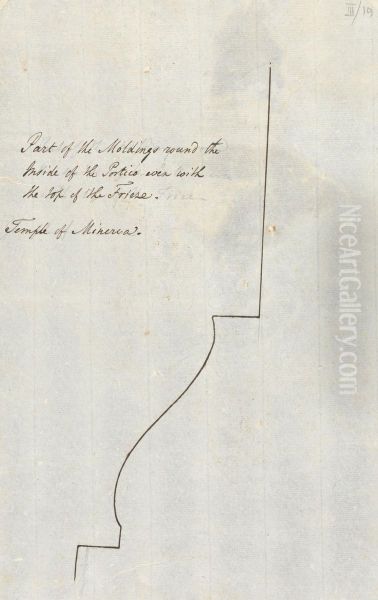 III/19
Part of the Moldings round the
Inside of the Portico even with
the top of the Frieze.
Temple of Minerva.
NiceArtGallery.com